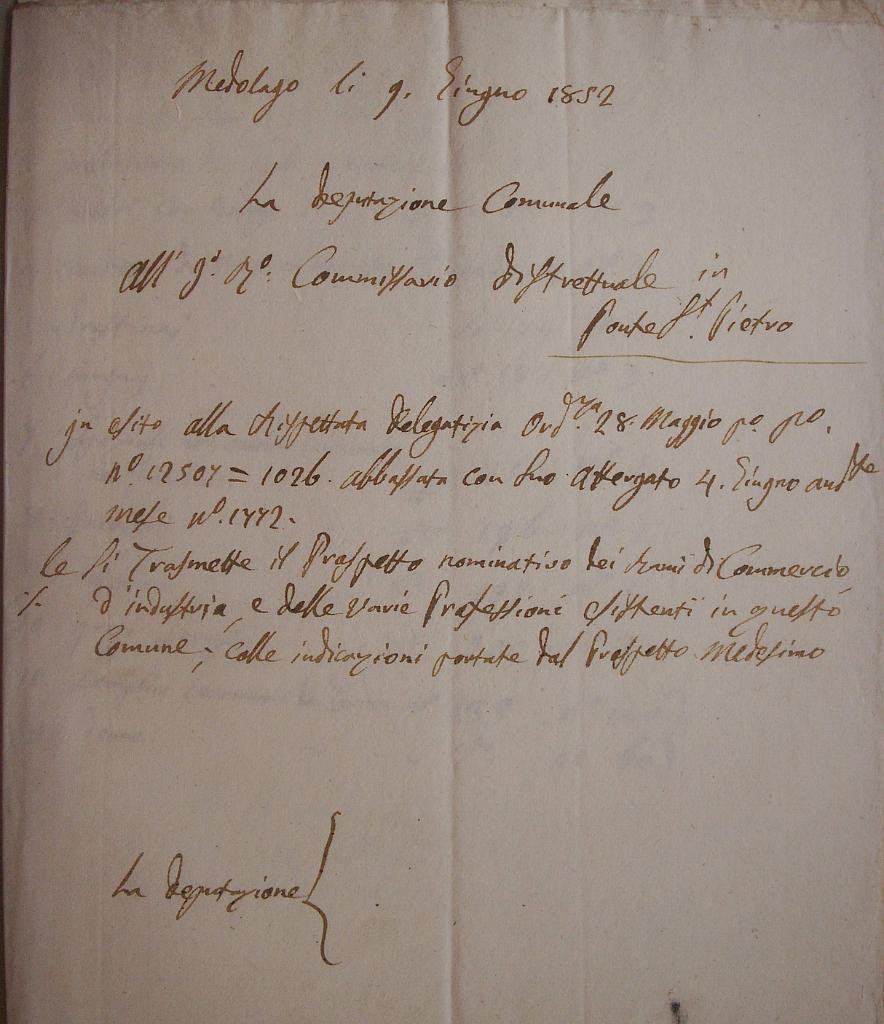 Medolago li 9. Giugno 1852
La Deputazione Comunale
all' J.' R.º: Commissario Distrettuale in
Ponte S.t Pietro
In esito alla Rispettata Delegatizia Ord.za 28. Maggio po. po.
nº. 12507 = 1026. abbassata con Suo attergato 4. Giugno andte
mese nº. 1772.
le Si Trasmette il Prospetto nominativo dei Rami di Commercio
./. d'industria, e delle varie Professioni esistenti in questo
Comune, colle indicazioni portate dal Prospetto Medesimo
La Deputazione